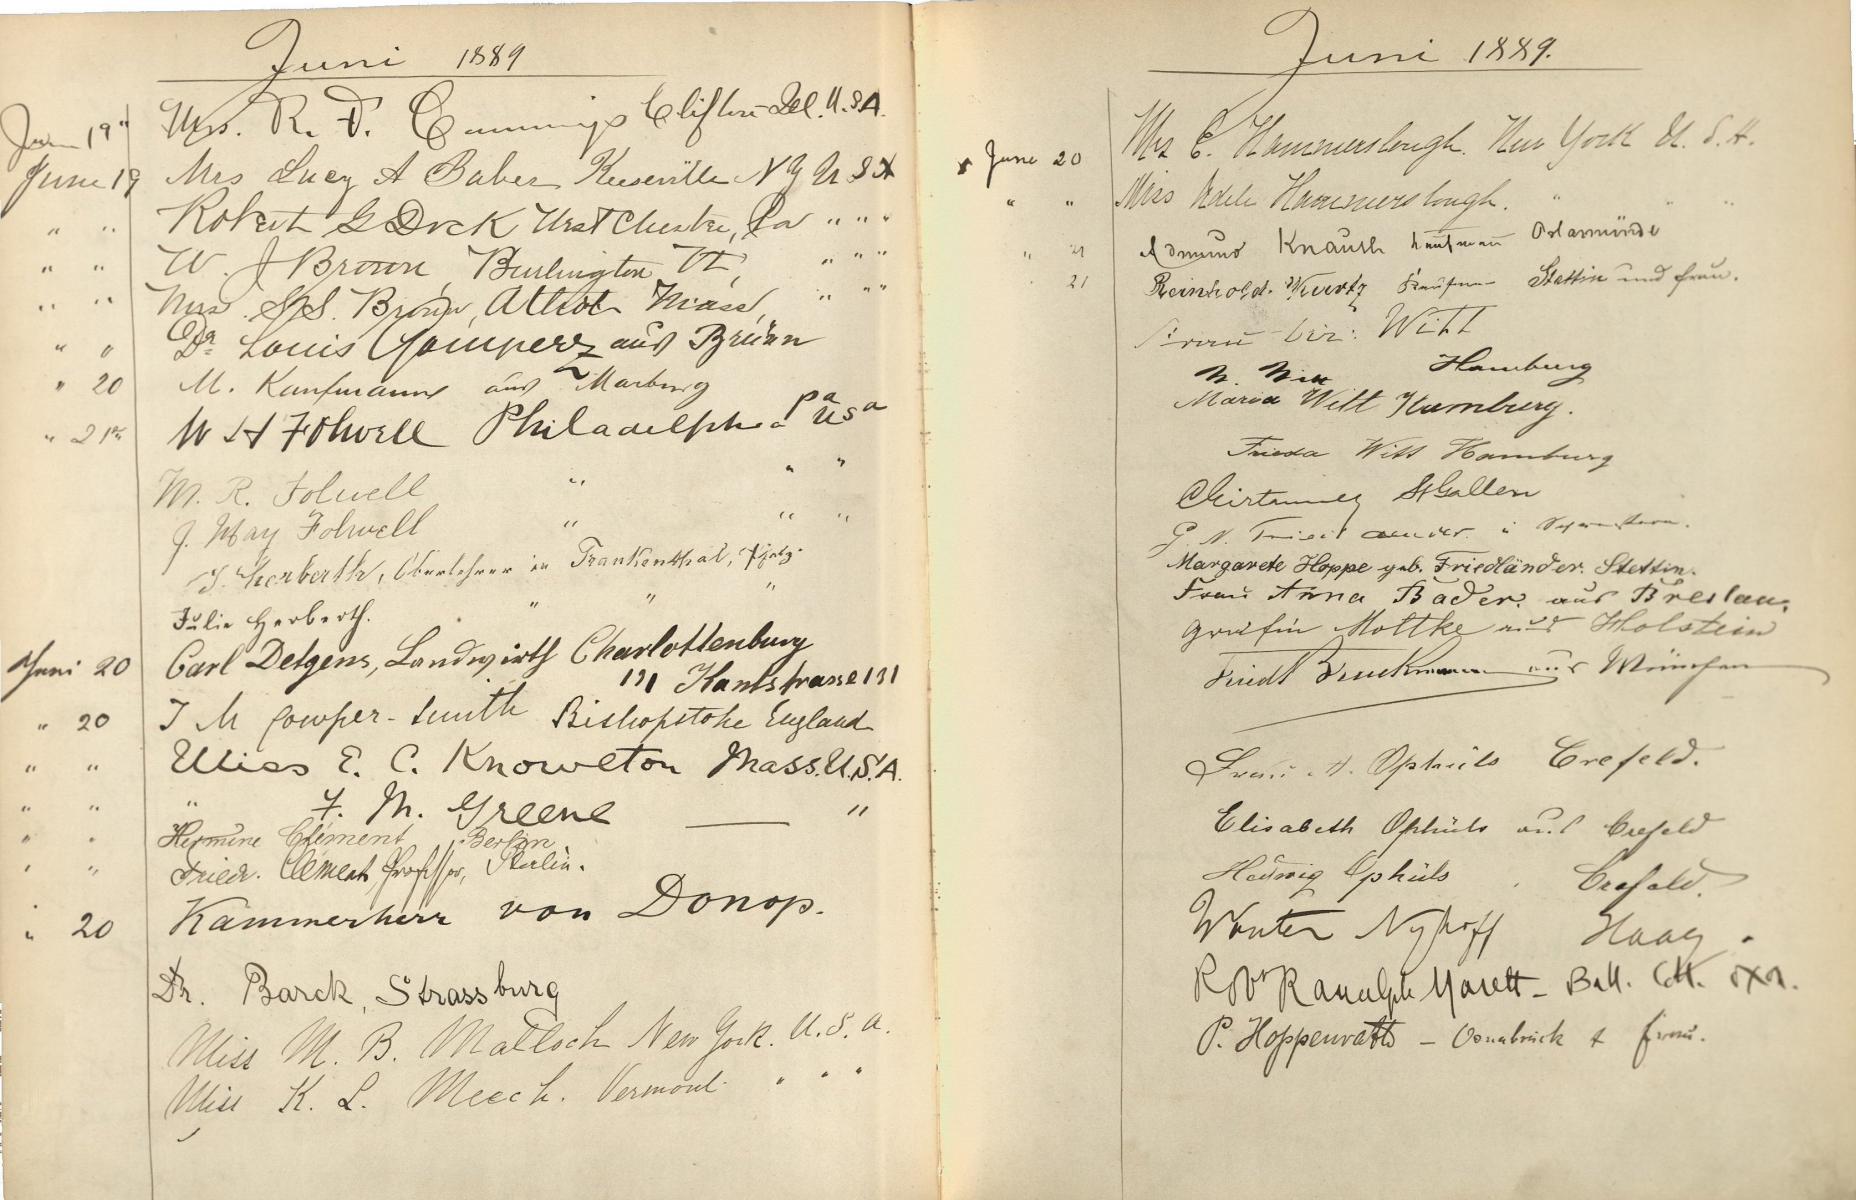 Juni 1889
June 19" Mrs. R. D. Cummings Clifton Del. U.S.A.
June 19 Mrs Lucy A Baber Keeseville N Y U S A
" " Robert G Dock West Chester, Pa " " "
" " W. J Brown Burlington Vt, " " "
" " Mrs. S. S. Brown, Athol Mass, " " "
" " Dr Louis Gomperz aus Brünn
" 20 M. Kaufmann aus Marburg
" 21st W H Folwell Philadelphia Pa U S a
M. R. Folwell " " "
J. May Folwell " " "
J. Herberth, Oberlehrer in Frankenthal, Pfalz.
Julie Herberth. " " "
Juni 20 Carl Detgens, Landwirth Charlottenburg
131 Kantstrasse 131
" 20 J M Cowper-Smith Bishopstoke England
" " Miss E. C. Knowlton Mass. U.S.A.
" " " F. M. Greene — "
" " Hermine Clément Berlin
" " Friedr. Clement, Professor, Berlin.
" 20 Kammerherr von Donop.
Dr. Barck, Strassburg
Miss M. B. Malloch New York. U.S.A.
Miss K. L. Meech. Vermont " " "
Juni 1889.
June 20 Mrs E. Hammerslough. New York U.S.A.
" " Miss Adele Hammerslough. " " "
" 21 Edmund Knauth Kaufmann Orlamünde
21 Reinhold Kurtz Kaufm Stettin und Frau.
Frau Dir: Witt
Hamburg
Maria Witt Hamburg.
Frieda Witt Hamburg
St Gallen
Margarete Hoppe geb. Friedländer. Stettin.
Frau Anna Bader. aus Breslau.
Gräfin Moltke aus Holstein
Friedr Bruckmann aus München
Frau A. Ophüls Crefeld.
Elisabeth Ophüls aus Crefeld
Hedwig Ophüls Crefeld.
Wouter Nyhoff Haag.
Robt Ranulph Marett - Ball. Coll. Oxon.
P. Hoppenrath - Osnabrück & Frau.